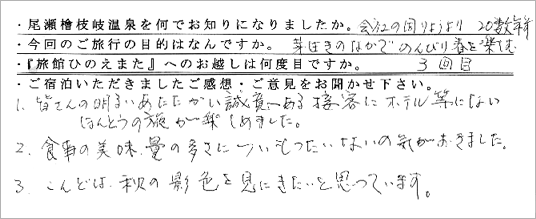 ・尾瀬檜枝岐温泉を何でお知りになりましたか。会社の同りょうより 20数年前
・今回のご旅行の目的はなんですか。芽ぶきのなかでのんびり春を楽しむ
・『旅館ひのえまた』へのお越しは何度目ですか。 3回目
・ご宿泊いただきましたご感想・ご意見をお聞かせ下さい。
1. 皆さんの明るいあたたかい誠意ある接客にホテル等にない
ほんとうの旅が楽しめました。
2. 食事の美味 量の多さについもったいないの気がおきました。
3. こんどは、秋の景色を見にきたいと思っています。